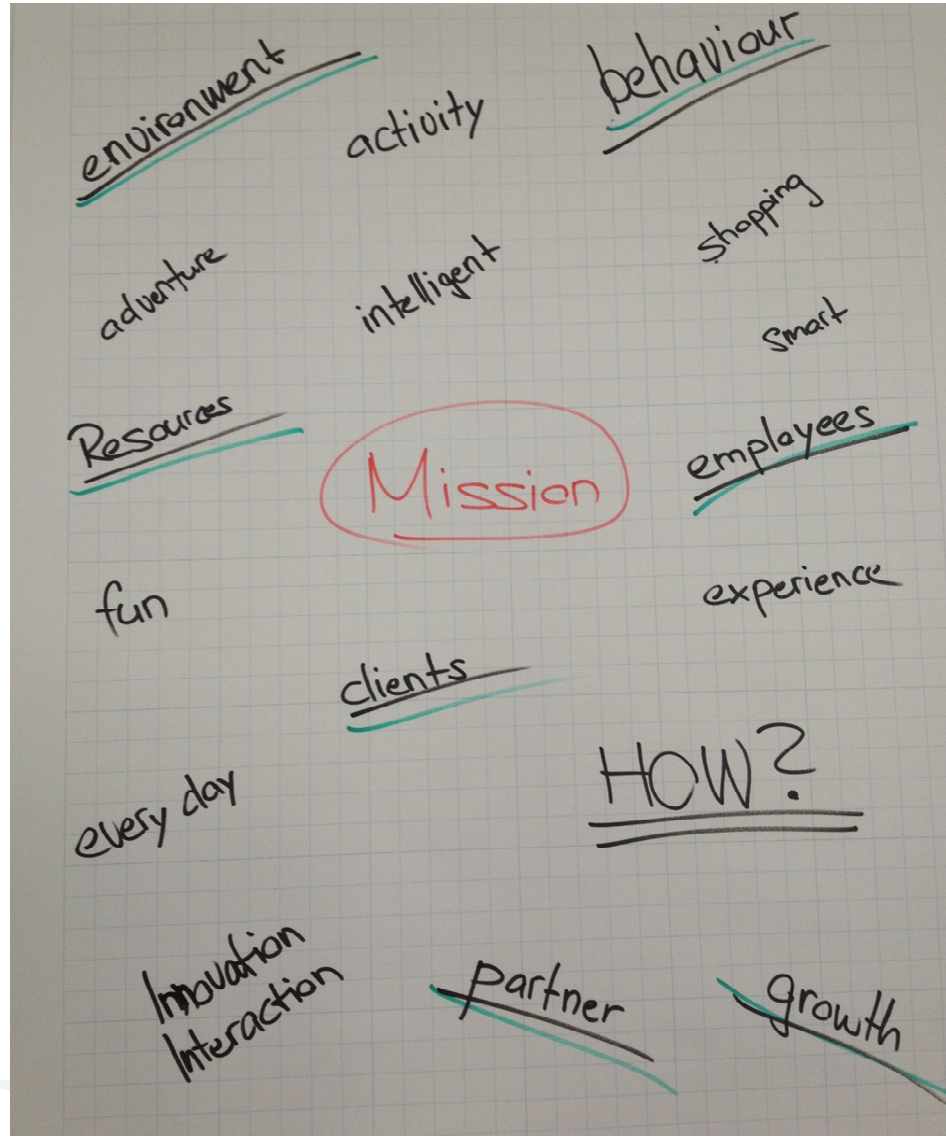 environment
activity
behaviour
adventure
intelligent
shopping
smart
Resources
Mission
employees
fun
experience
clients
HOW?
every day
Innovation
Interaction
partner
growth